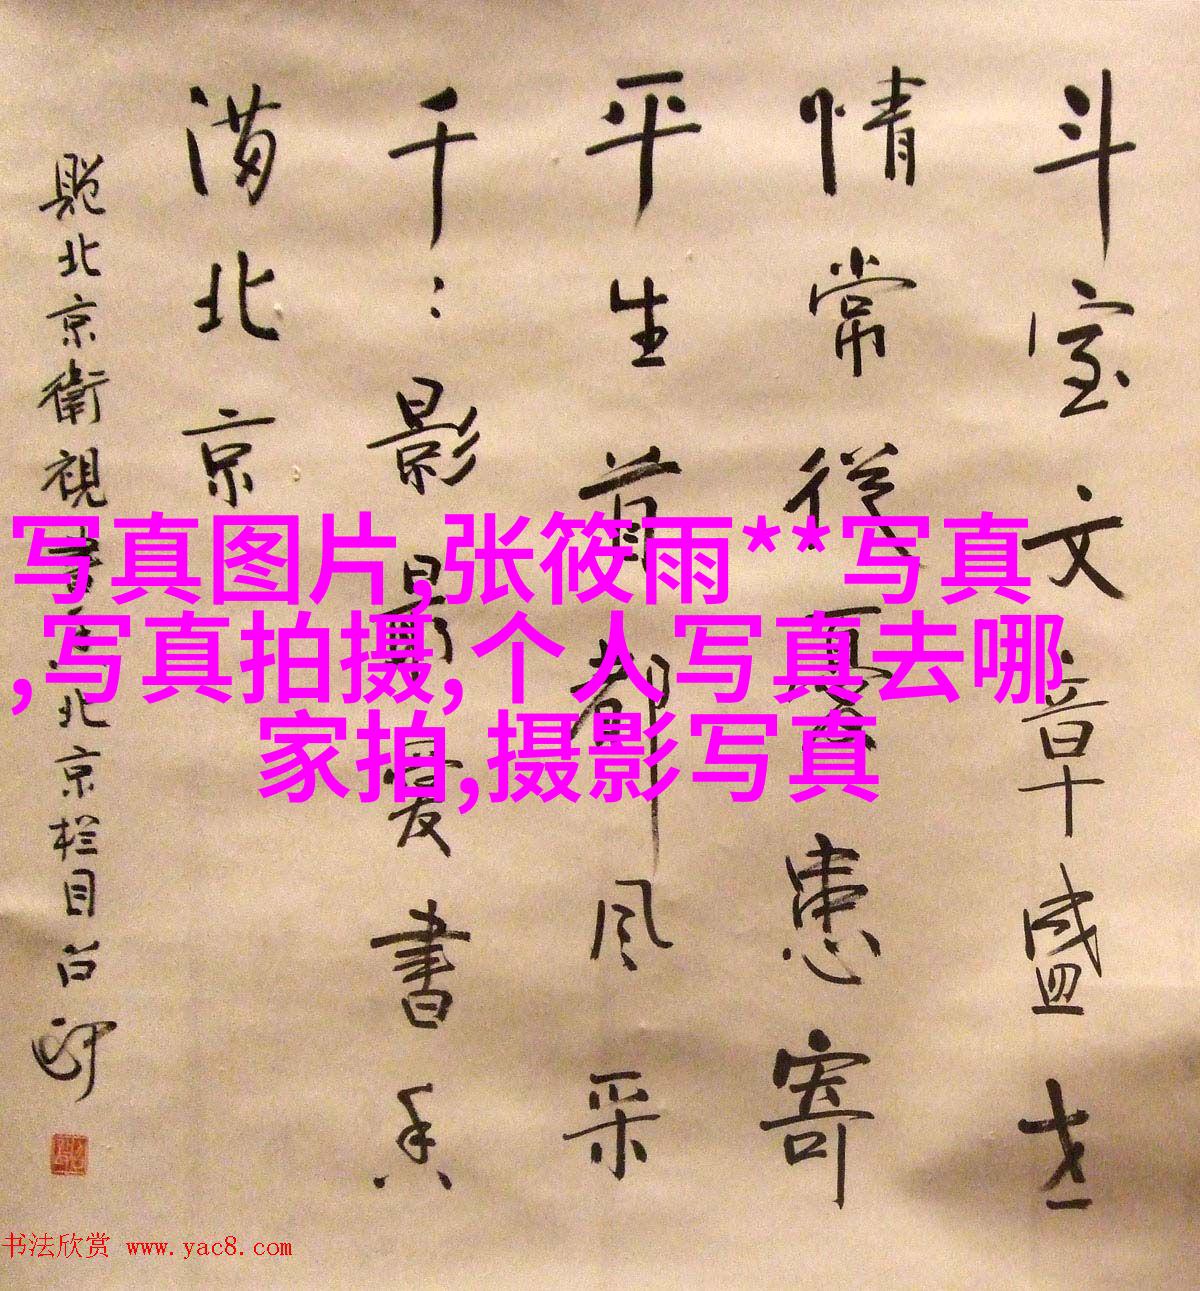 斗室文章盛世
情常從憂患寄
平生首都风采
千〻影最愛書香
满北京
题北京衛視書香北京栏目
写真图片,张筱雨**写真
,写真拍摄,个人写真去哪
家拍,摄影写真
书法欣赏 www.yac8.com